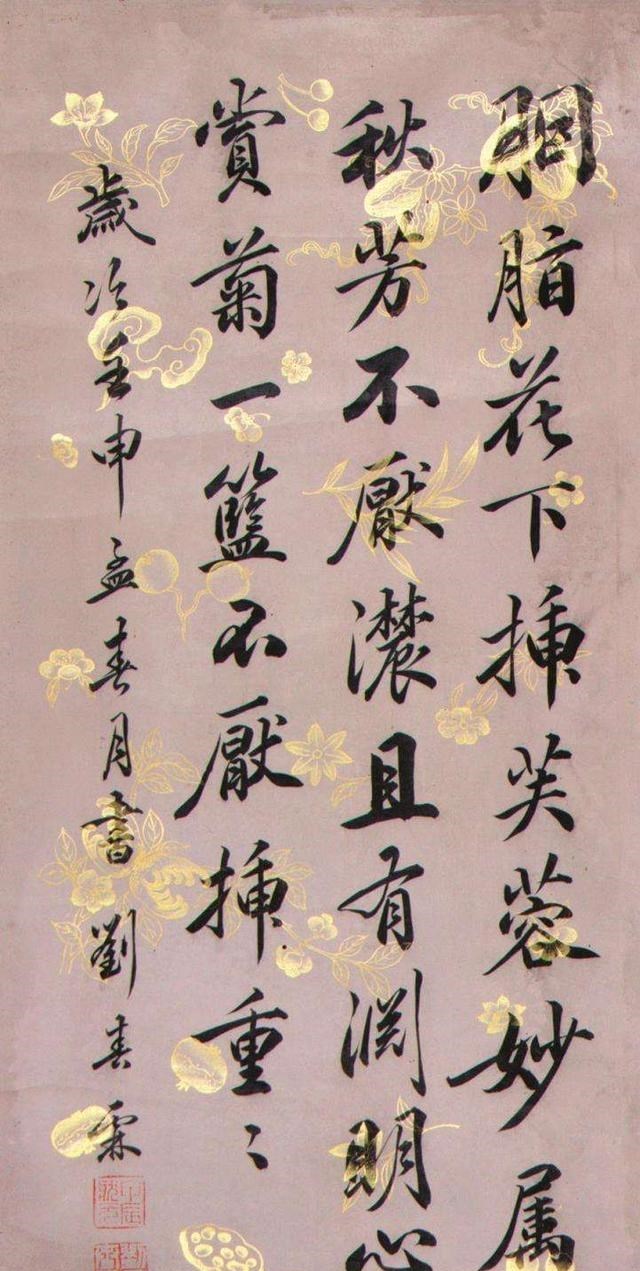 胭脂花下挿芙蓉妙属
秋芳不厭濃且有渕明心
賞菊一籃不厭挿重〻
歲次壬申孟春月書劉春霖